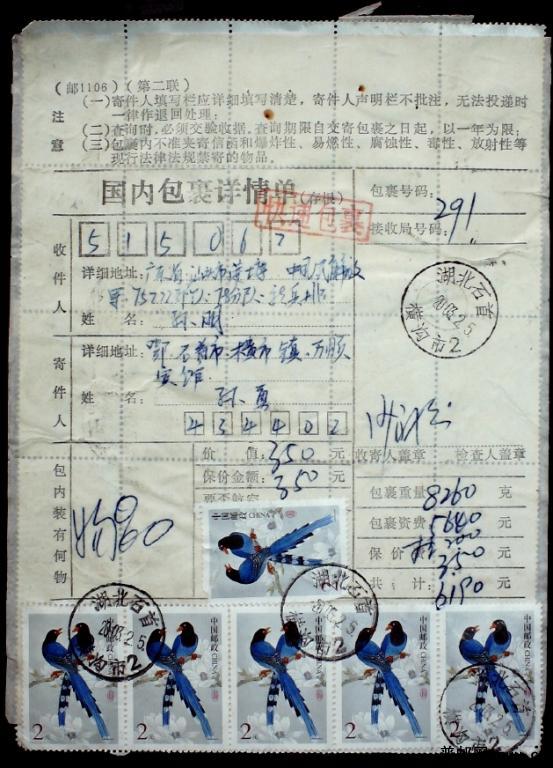 (邮1106)(第二联)
注意
(一)寄件人填写栏应详细填写清楚，寄件人声明栏不批注，无法投递时
一律作退回处理；
(二)查询时，必须交验收据。查询期限自交寄包裹之日起，以一年为限；
(三)包裹内不准夹寄信函和爆炸性、易燃性、腐蚀性、毒性、放射性等
现行法律法规禁寄的物品。
国内包裹详情单(存根)
快递包裹
包裹号码：
291
接收局号码：
收件人
515067
详细地址：广东省汕头市
军75722部队
姓名：孙刚
寄件人
详细地址：鄂石首市横市镇万顺
宾馆
姓名：孙勇
434402
价值：350元
保价金额：350元
收寄人盖章
检查人盖章
包内装有何物
包裹重量 8260 克
包裹资费 5640 元
挂 200
保价费 350 元
共计：6190 元
湖北石首
2003.2.5
横沟市2
中国邮政 CHINA
湖北石首
2003.2.5
横沟市2
湖北石首
2003.2.5
横沟市2
中国邮政 CHINA
2
中国邮政 CHINA
2
中国邮政 CHINA
2
中国邮政 CHINA
2
中国邮政 CHINA
2